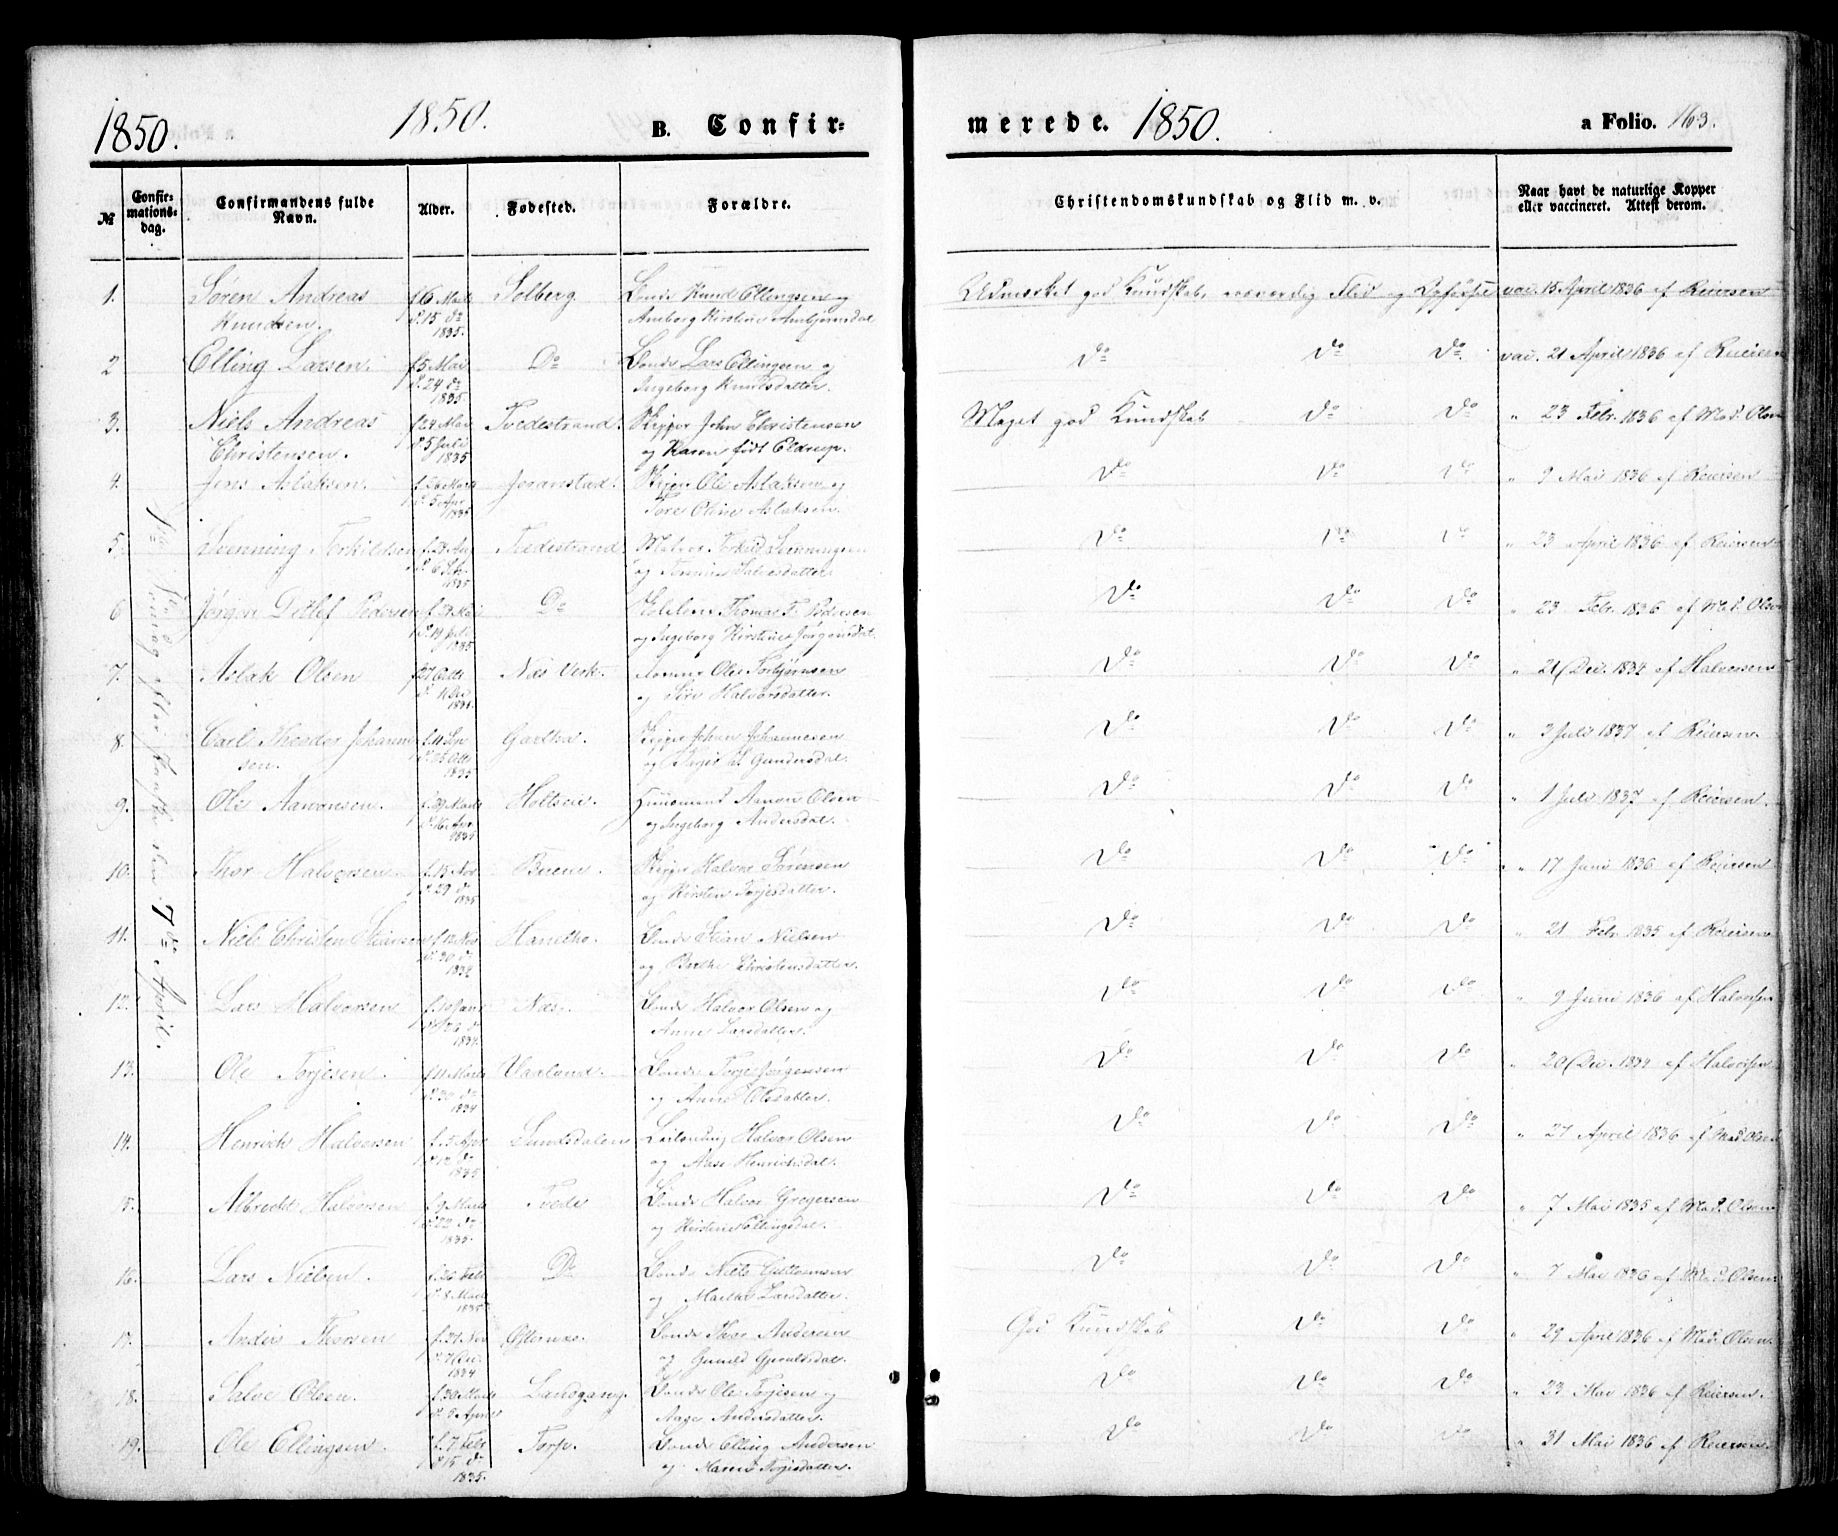 1850.
1850.
B. Confir-
№
Confir-
mations-
dag.
Confirmandens fulde
Navn.
Alder.
Fødested.
Forældre.
1ste Søndag efter Paaske den 7de April.
1. Søren Andreas f. 6 Marts Solberg Bonde Knud Ellingsen og
Knudsen. d. 15 do
1835.
2 Elling Larsen. f. 5 Mai Do Bonde Lars Ellingsen og
d. 24 do Ingeborg Knudsdatter.
1835
3. Niels Andreas f. 24 Mai Tvedestrand. Skipper John Christensen
Christensen. d. 5 Juli og Karen født Eldrup.
1835
4. Jens Aslaksen. f. 26 Marts Ole Aslaksen og
d. 5 Apr Tore Oline Aslaksen.
1835
5. Svenning Torkildsen Tvedestrand. Torkild Svenningsen
d. 6 1835
6 Jørgen Ditlef Pedersen Do Thomas F. Pedersen
d. 19 og Ingeborg Kirstine Jørgensdat.
1835
7. Aslak Olsen f. 27 Næs Verk. Ole Torbjørnsen
og Siri Halvorsdatter.
1834.
8. Carl Theodor Johannesen. f. 11 Sep Gjortho. Johan Johannesen
og Gundersdal.
1835
9. Ole Aanonsen. f. 29 Marts Holtsen. Huusmand Aanon Olsen
d. 16 Apr. og Ingeborg Andersdat.
10. Thor Halvorsen f. 13 Nov Halvor Sørensen
d. 29 do og Kirsten Torjesdatter.
1835
11. Niels Christen Stiansen f. 12 Nov Bonde Stian Nielsen
d. 30 do og Berthe Christensdatter.
1834
12. Lars Halvorsen Næs. Bonde Halvor Olsen og
Anne Larsdatter.
1834.
13. Ole Torjesen. f. 11 Marts Vaaland. Bonde Torje Jørgensen
d. 30 do og Anne Olsdatter.
1834
14. Henrich Halvorsen f. 5 Apr Sundsdalen Leilending Halvor Olsen
d. 12 do og Aase Henrichsdat.
1835
15. Albrecht Halvorsen f. 9 Marts Tvede Bonde Halvor Gregersen
d. 22 do og Kirstine Ellingsdat.
1835.
16. Lars Nielsen. f. 26 Febr Do Bonde Niels Guttormsen
d. 8 Marts og Marthe Larsdatter.
1835
17. Anders Thorsen Bonde Thor Andersen
og Gunild
1834
18. Salve Olsen. f. 30 Marts Landgang. Bonde Ole Torjesen og
d. 5 April Aage Andersdatter.
19. Ole Ellingsen f. 7 Febr Torp. Bonde Elling Andersen
d. 15 do og Maren Torjesdatter.
1835.
merede. 1850.
a Folio. 163.
Christendomskundskab og Flid m. v.
Naar havt de naturlige Kopper
eller vaccineret. Attest derom.
Udmærket god Kundskab, roesværdig Flid og Opførsel vac. 15 April 1836 af Reiersen
Do Do Do vac. 21 April 1836 af Reiersen
Meget god Kundskab Do Do " 23 Febr. 1836 af Mad. Olsen
Do Do Do " 9 Mai 1836 af Reiersen
Do Do Do " 23 April 1836 af Reiersen
Do Do Do " 23 Febr. 1836 af Mad. Olsen
Do Do Do " 21 Dec. 1834 af Halvorsen
Do Do Do " 3 Juli 1837 af Reiersen.
Do Do Do " 1 Juli 1837 af Reiersen.
Do Do Do " 17 Juni 1836 af Reiersen
Do Do Do " 21 Febr 1835 af Reiersen
Do Do Do " 9 Juni 1836 af Halvorsen
Do Do Do " 20 Dec. 1834 af Halvorsen
Do Do Do " 27 April 1836 af Mad. Olsen
Do Do Do " 7 Mai 1835 af Mad. Olsen
Do Do Do " 7 Mai 1836 af Mad. Olsen
God Kundskab Do Do " 29 April 1836 af Mad. Olsen.
Do Do Do " 23 Mai 1836 af Reiersen.
Do Do Do " 31 Mai 1836 af Reiersen.